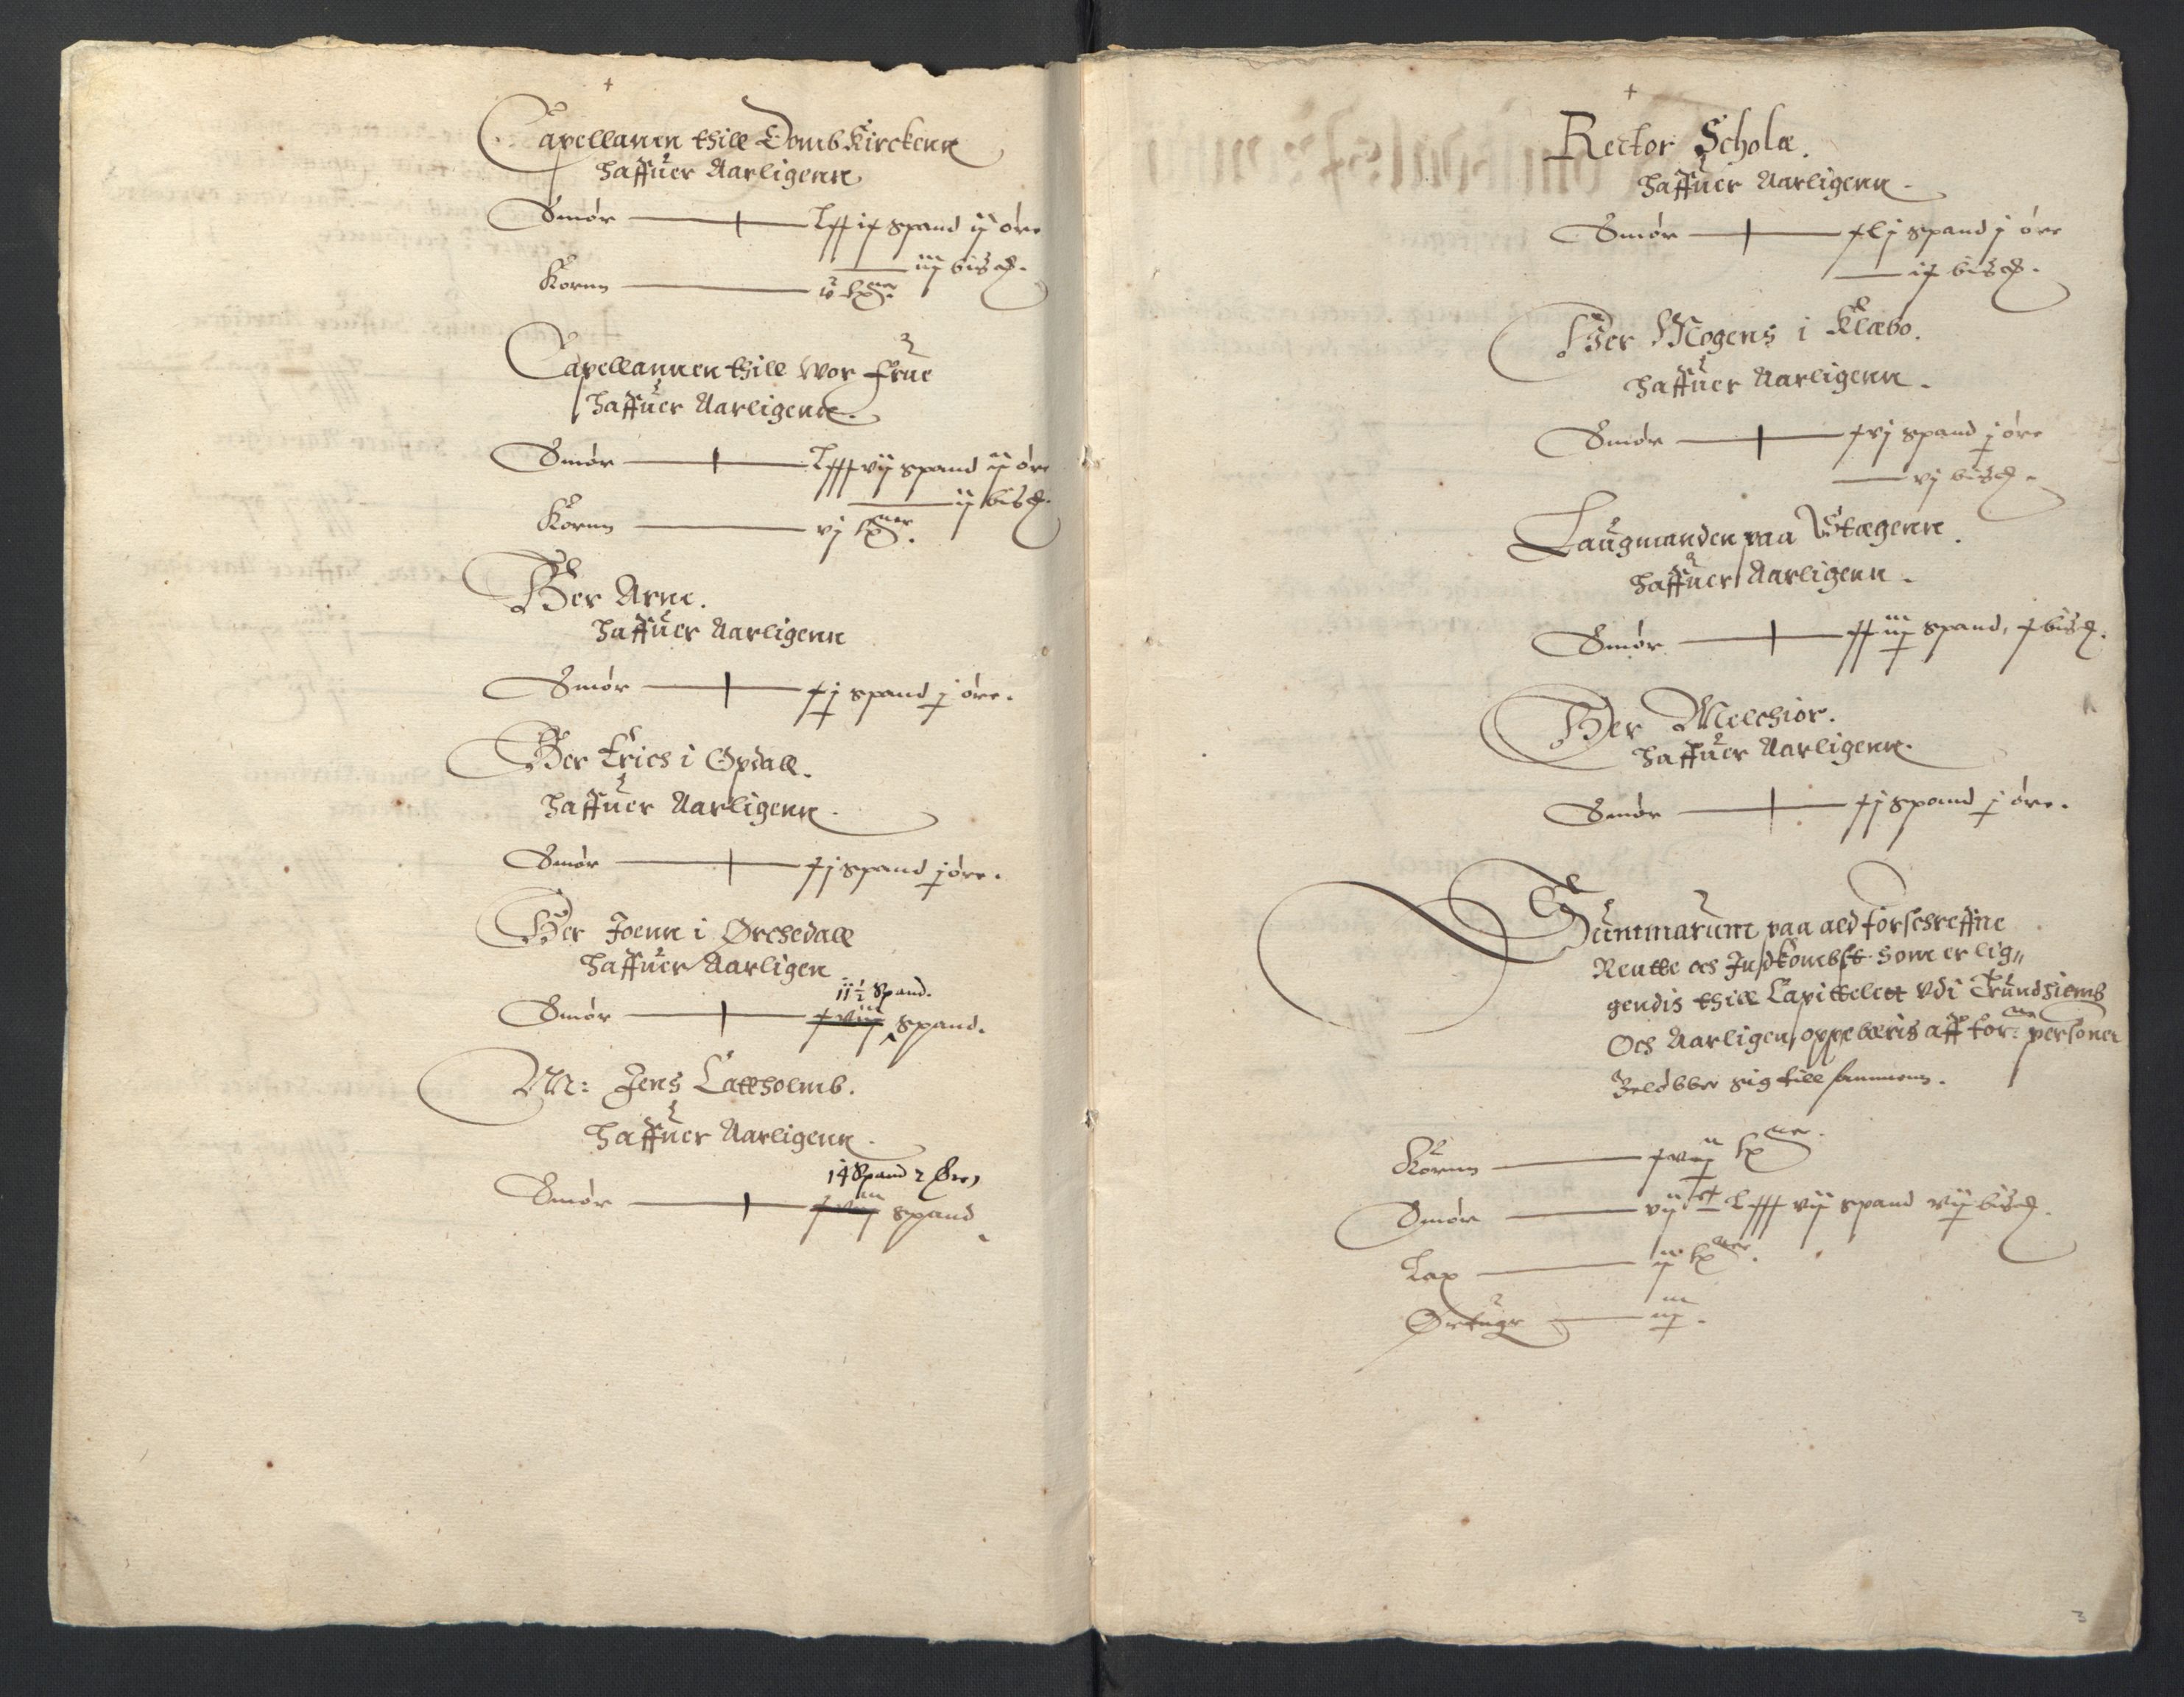 Capellanen thill Domb Kirckenn
haffuer Aarligenn
Smør — lxx ix spand ij øre
iij bis℔.
Kornn — v
Capellannen thill Wor Frue
haffuer Aarligenn.
Smør — lxxx vij spand ij øre
ij bis℔.
Kornn — vj
Her Arne.
haffuer Aarligenn
Smør — xj spand j øre.
Her Erics i Opdall.
haffuer Aarligenn.
Smør — xj spand j øre.
Her Joenn i Orchedall
haffuer Aarligen
11½ Spand.
Smør — spand.
M: Jens Lattholmb.
haffuer Aarligenn.
14 Spand 2 Øre
Smør — spand
Rector Scholæ.
haffuer Aarligenn.
Smør — xlj spand j øre
ix bis℔.
Her Mogens i Klæbo.
haffuer Aarligenn.
Smør — xvj spand j øre
vj bis℔.
Laugmanden paa Stægenn.
haffuer Aarligenn.
Smør — xx iij spand, x bis℔.
Her Melchior.
haffuer Aarligenn.
Smør — xj spand j øre.
Summarum paa ald forschreffne
Rentte och Indkombst som er lig„
gendis thill Capittelett vdi Trundhiemb
Och Aarligen oppebæris aff for: personer
Beløbber sig till sammens.
Kornn — xvij
Smør — vij lxxx vij spand vij bis℔.
Lax — ij
Ørtuger — iij.
3